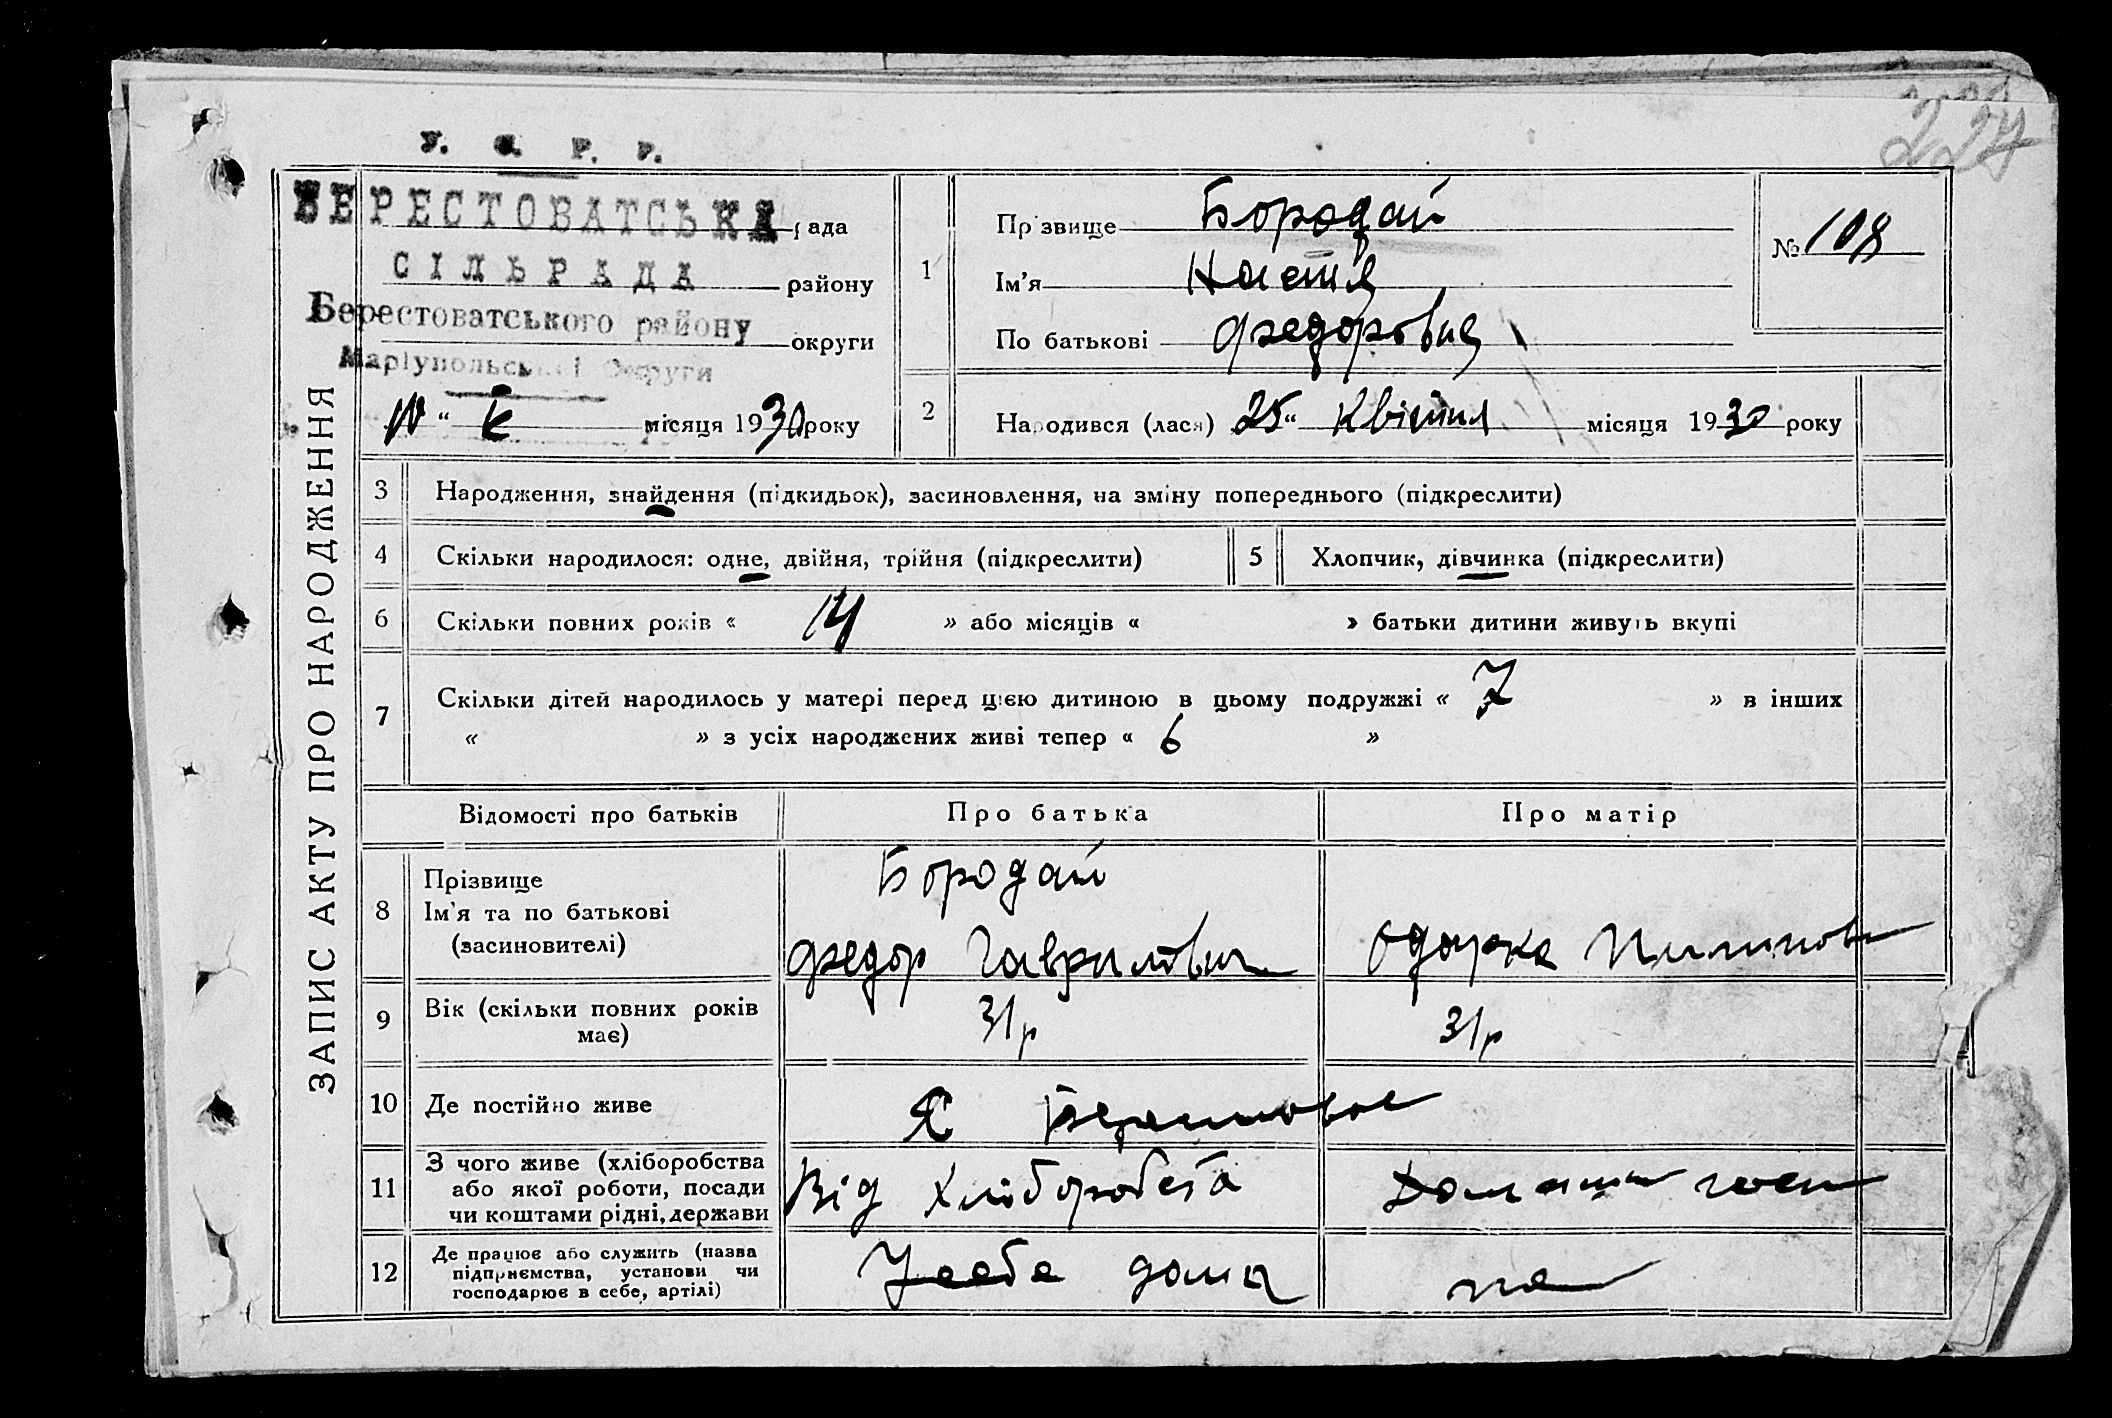 227
У. С. Р. Р.
БЕРЕСТОВАТСЬКА рада
СІЛЬРАДА району
Берестоватського району округи
Маріупольської Округи
місяця 1930 року
1
Прізвище Бородай
Ім'я Настя
По батькові Федоровна
№ 108
2
Народився (лася) 25 “ квітня місяця 1930 року
ЗАПИС АКТУ ПРО НАРОДЖЕННЯ
3 Народження, знайдення (підкидьок), засиновлення, на зміну попереднього (підкреслити)
4 Скільки народилося: одне, двійня, трійня (підкреслити)
5 Хлопчик, дівчинка (підкреслити)
6 Скільки повних років « 14 » або місяців « » батьки дитини живуть вкупі
7 Скільки дітей народилось у матері перед цією дитиною в цьому подружжі « 7 » в інших
« » з усіх народжених живі тепер « 6 »
Відомості про батьків
Про батька
Про матір
8
Прізвище
Ім'я та по батькові
(засиновителі)
Бородай
Федор Гаврилович
Одарка
9
Вік (скільки повних років
має)
31 р
31 р
10 Де постійно живе
С Берестовое
11
З чого живе (хліборобства
або якої роботи, посади
чи коштами рідні, держави
Від хліборобства
12
Де працює або служить (назва
підприємства, установи чи
господарює в себе, артілі)
У себе дома